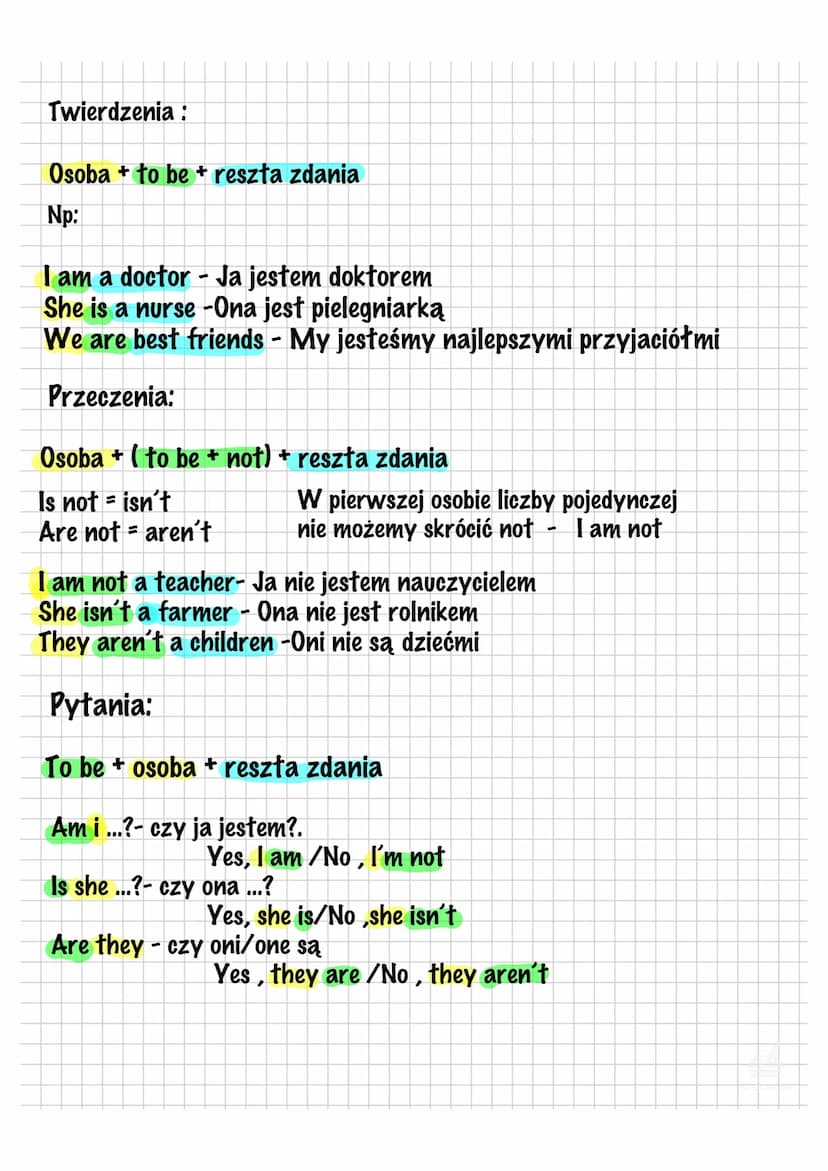 Twierdzenia :
Osoba + to be + reszta zdania
Np:
I am a doctor - Ja jestem doktorem
She is a nurse -Ona jest pielegniarką
We are best friends - My jesteśmy najlepszymi przyjaciółmi
Przeczenia:
Osoba + ( to be + not) + reszta zdania
Is not = isn't
Are not = aren't
W pierwszej osobie liczby pojedynczej
nie możemy skrócić not - I am not
I am not a teacher- Ja nie jestem nauczycielem
She isn't a farmer - Ona nie jest rolnikem
They aren't a children -Oni nie są dziećmi
Pytania:
To be + osoba + reszta zdania
Am i ...?- czy ja jestem?.
Yes, I am /No , I'm not
Is she ...?- czy ona ...?
Yes, she is/No ,she isn't
Are they - czy oni/one są
Yes , they are /No , they aren't